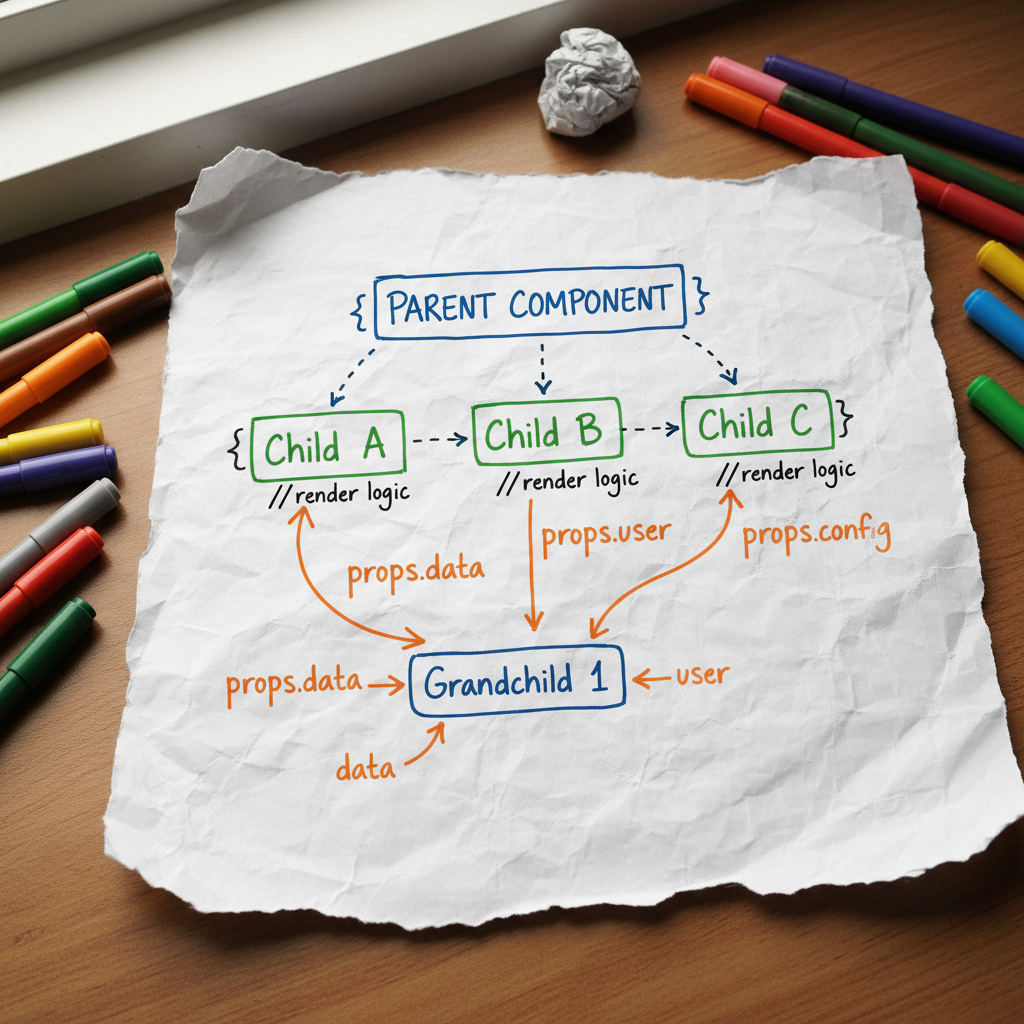 { PARENT COMPONENT }
{ Child A Child B Child C }
//render logic //render logic //render logic
props.data props.user props.config
props.data Grandchild 1 user
data